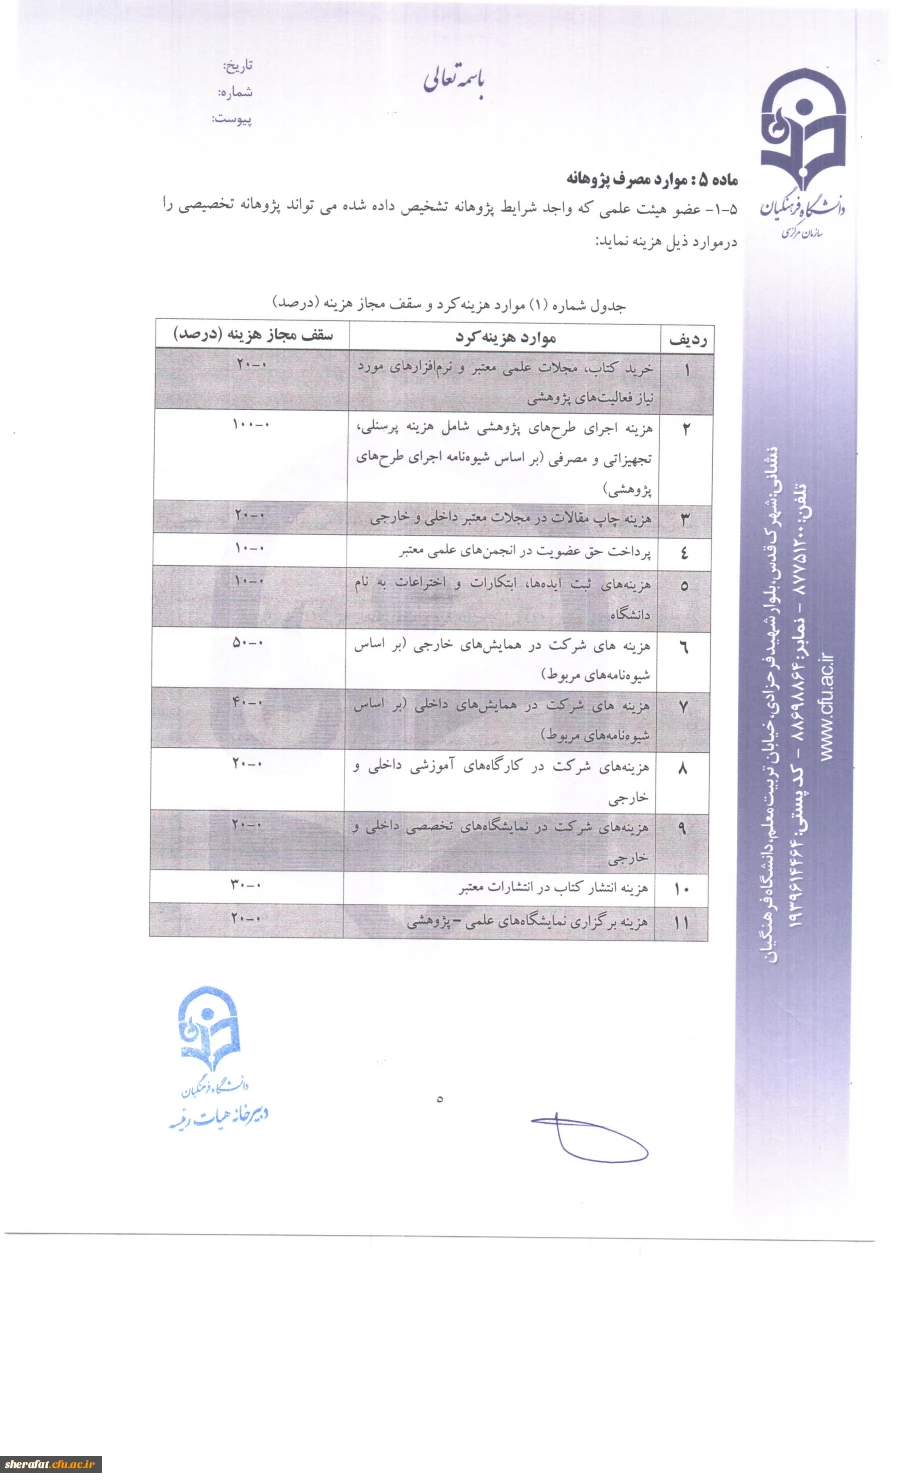 باسمه تعالی
تاریخ:
شماره:
پیوست:
دانشگاه فرهنگیان
سازمان مرکزی
ماده ۵ : موارد مصرف پژوهانه
۵-۱- عضو هیئت علمی که واجد شرایط پژوهانه تشخیص داده شده می تواند پژوهانه تخصیصی را
درموارد ذیل هزینه نماید:
جدول شماره (۱) موارد هزینه‌کرد و سقف مجاز هزینه (درصد)
ردیف موارد هزینه‌کرد سقف مجاز هزینه (درصد)
۱ خرید کتاب، مجلات علمی معتبر و نرم‌افزارهای مورد ۰-۲۰
نیاز فعالیت‌های پژوهشی
۲ هزینه اجرای طرح‌های پژوهشی شامل هزینه پرسنلی، ۰-۱۰۰
تجهیزاتی و مصرفی (بر اساس شیوه‌نامه اجرای طرح‌های
پژوهشی)
۳ هزینه چاپ مقالات در مجلات معتبر داخلی و خارجی ۰-۲۰
٤ پرداخت حق عضویت در انجمن‌های علمی معتبر ۰-۱۰
۵ هزینه‌های ثبت ایده‌ها، ابتکارات و اختراعات به نام ۰-۱۰
دانشگاه
٦ هزینه های شرکت در همایش‌های خارجی (بر اساس ۰-۵۰
شیوه‌نامه‌های مربوط)
۷ هزینه های شرکت در همایش‌های داخلی (بر اساس ۰-۴۰
شیوه‌نامه‌های مربوط)
۸ هزینه‌های شرکت در کارگاه‌های آموزشی داخلی و ۰-۲۰
خارجی
۹ هزینه‌های شرکت در نمایشگاه‌های تخصصی داخلی و ۰-۲۰
خارجی
۱۰ هزینه انتشار کتاب در انتشارات معتبر ۰-۳۰
۱۱ هزینه برگزاری نمایشگاه‌های علمی – پژوهشی ۰-۲۰
نشانی: شهرک قدس، بلوار شهید فرحزادی، خیابان تربیت معلم، دانشگاه فرهنگیان
تلفن: ۸۷۷۵۱۲۰۰ - نمابر: ۸۸۶۹۸۸۶۴ - کد پستی: ۱۹۳۹۶۱۴۴۶۴
www.cfu.ac.ir
دانشگاه فرهنگیان
دبیرخانه هیات رئیسه
۵
sherafat.cfu.ac.ir